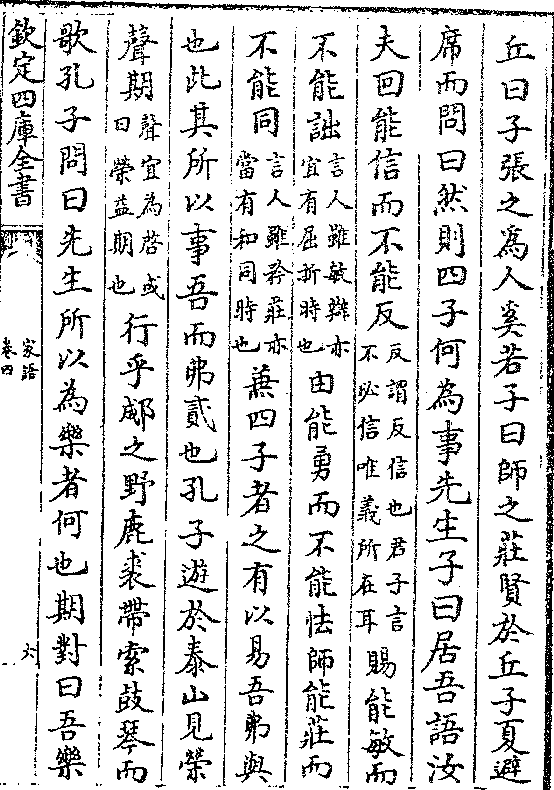 丘曰子張之爲人奚若子曰師之莊賢於丘子夏避
席而問曰然則四子何為事先生子曰居吾語汝
夫回能信而不能反反謂反信也君子言不必信唯義所在耳賜能敏而
不能詘言人雖敏辯亦宜有屈折時也由能勇而不能怯師能莊而
不能同言人雖矜莊亦當有和同時也兼四子者之有以易吾弗與
也此其所以事吾而弗貳也孔子遊於泰山見榮
聲期聲宜為啓或曰榮益期也行乎郕之野鹿裘帶索鼓琴而
歌孔子問曰先生所以為樂者何也期對曰吾樂
欽定四庫全書
家語
卷四
六